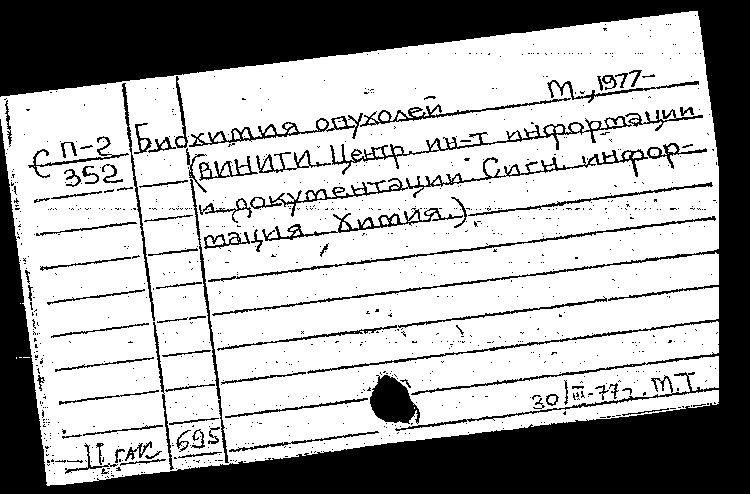 Биохимия опухолей. М., 1977-
С П-2
352
(ВИНИТИ. Центр. ин-т информации
и документации. Сигн. инфор-
мация. Химия.)
30/III-77г. М.Т.
II 695